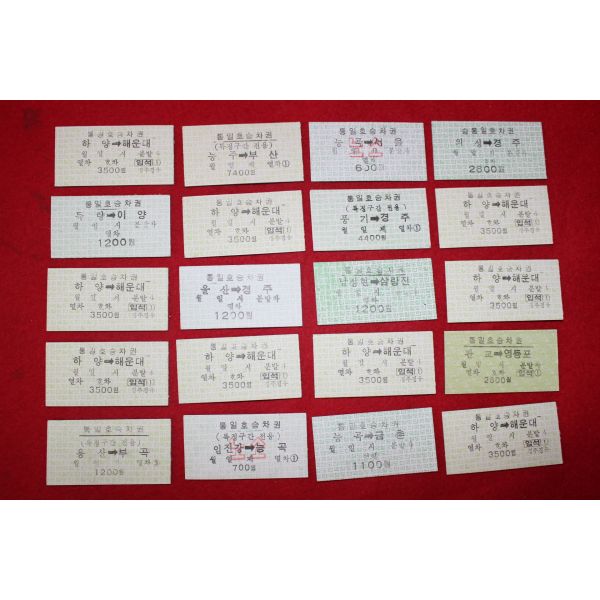 통일호승차권
하 양➡해운대
월 일 시 분발
열차 호차 입석
3500원
통일호승차권
(특정구간 전용)
능 주➡부 산
월 일 제 열차①
7400원
통일호승차권
능 곡➡서 울
월 일
600원
통일호승차권
의 성➡경 주
월 일 시
2800원
통일호승차권
득 량➡이 양
월 일 시
열차
1200원
통일호승차권
하 양➡해운대
월 일 시 분발
열차 호차 입석
3500원
통일호승차권
(특정구간 전용)
풍 기➡경 주
월 일 제 열차①
4400원
통일호승차권
하 양➡해운대
월 일 시 분발
열차 호차 입석
3500원
통일호승차권
하 양➡해운대
월 일 시 분발
열차 호차 입석
3500원
통일호승차권
울 산➡경 주
월 일 시 분발차
1200원
통일호승차권
➡삼랑진
월 일 시
1200원
통일호승차권
하 양➡해운대
월 일 시 분발
열차 호차 입석
3500원
통일호승차권
하 양➡해운대
월 일 시 분발
열차 호차 입석
3500원
통일호승차권
하 양➡해운대
월 일 시 분발
열차 호차 입석
3500원
통일호승차권
하 양➡해운대
월 일 시 분발
열차 호차 입석
3500원
통일호승차권
판 교➡영등포
월 일 시 분발
열차 호차 입석
2800원
통일호승차권
(특정구간 전용)
용 산➡부 곡
월 일 열차
1200원
통일호승차권
(특정구간 전용)
임진강➡능 곡
월 일 제 열차①
700원
통일호승차권
능 곡➡금 촌
월 일 시
1100원
통일호승차권
하 양➡해운대
월 일 시 분발
열차 호차 입석
3500원